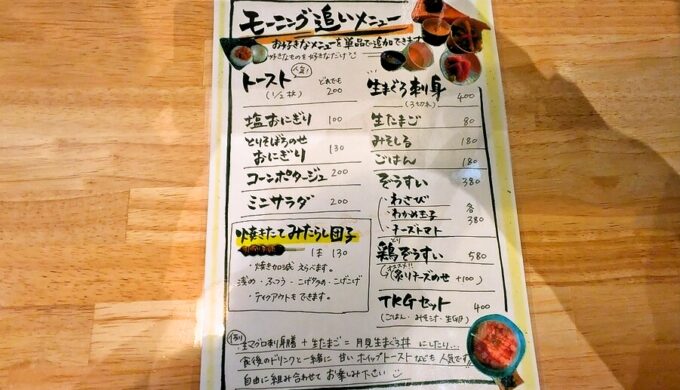 モーニング追いメニュー
お好きなメニューを単品で追加できます
好きなものを好きなだけ
人気!
トースト どれでも
(1/2枚) 200
塩おにぎり 100
とりそぼろのせ
おにぎり 130
コーンポタージュ 200
ミニサラダ 200
焼きたて みたらし団子
1本 130
・焼き加減 えらべます。
浅め・ふつう・こげ多め・こげこげ
・テイクアウトもできます。
生まぐろ刺身 400
(3切れ)
生たまご 80
みそしる 180
ごはん 180
ぞうすい 380
・わさび
・わかめ玉子 各
380
・チーズトマト
とり
鶏ぞうすい 580
オススメ!!
(炙りチーズのせ +100)
TKGセット 400
(ごはん・みそしる・生卵)
例 生マグロ刺身 + 生たまご = 月見生まぐろ丼 にしたり...
食後のドリンクと一緒に 甘い ホイップトーストなども 人気です
自由に組み合わせて お楽しみ下さい